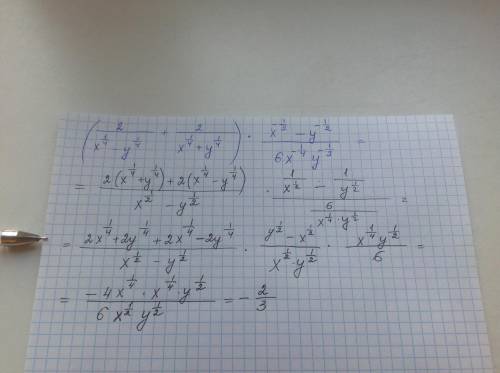 (2/(x^(1/4) - y^(1/4)) + 2/(x^(1/4) + y^(1/4))) · (x^(-1/2) - y^(-1/2))/(6x^(-1/4) y^(-1/2)) =
= (2(x^(1/4) + y^(1/4)) + 2(x^(1/4) - y^(1/4)))/(x^(1/2) - y^(1/2)) · (1/x^(1/2) - 1/y^(1/2))/(6/(x^(1/4) · y^(1/2))) =
= (2x^(1/4) + 2y^(1/4) + 2x^(1/4) - 2y^(1/4))/(x^(1/2) - y^(1/2)) · (y^(1/2) - x^(1/2))/(x^(1/2) · y^(1/2)) · (x^(1/4) y^(1/2))/6 =
= (-4x^(1/4) · x^(1/4) · y^(1/2))/(6 x^(1/2) y^(1/2)) = - 2/3